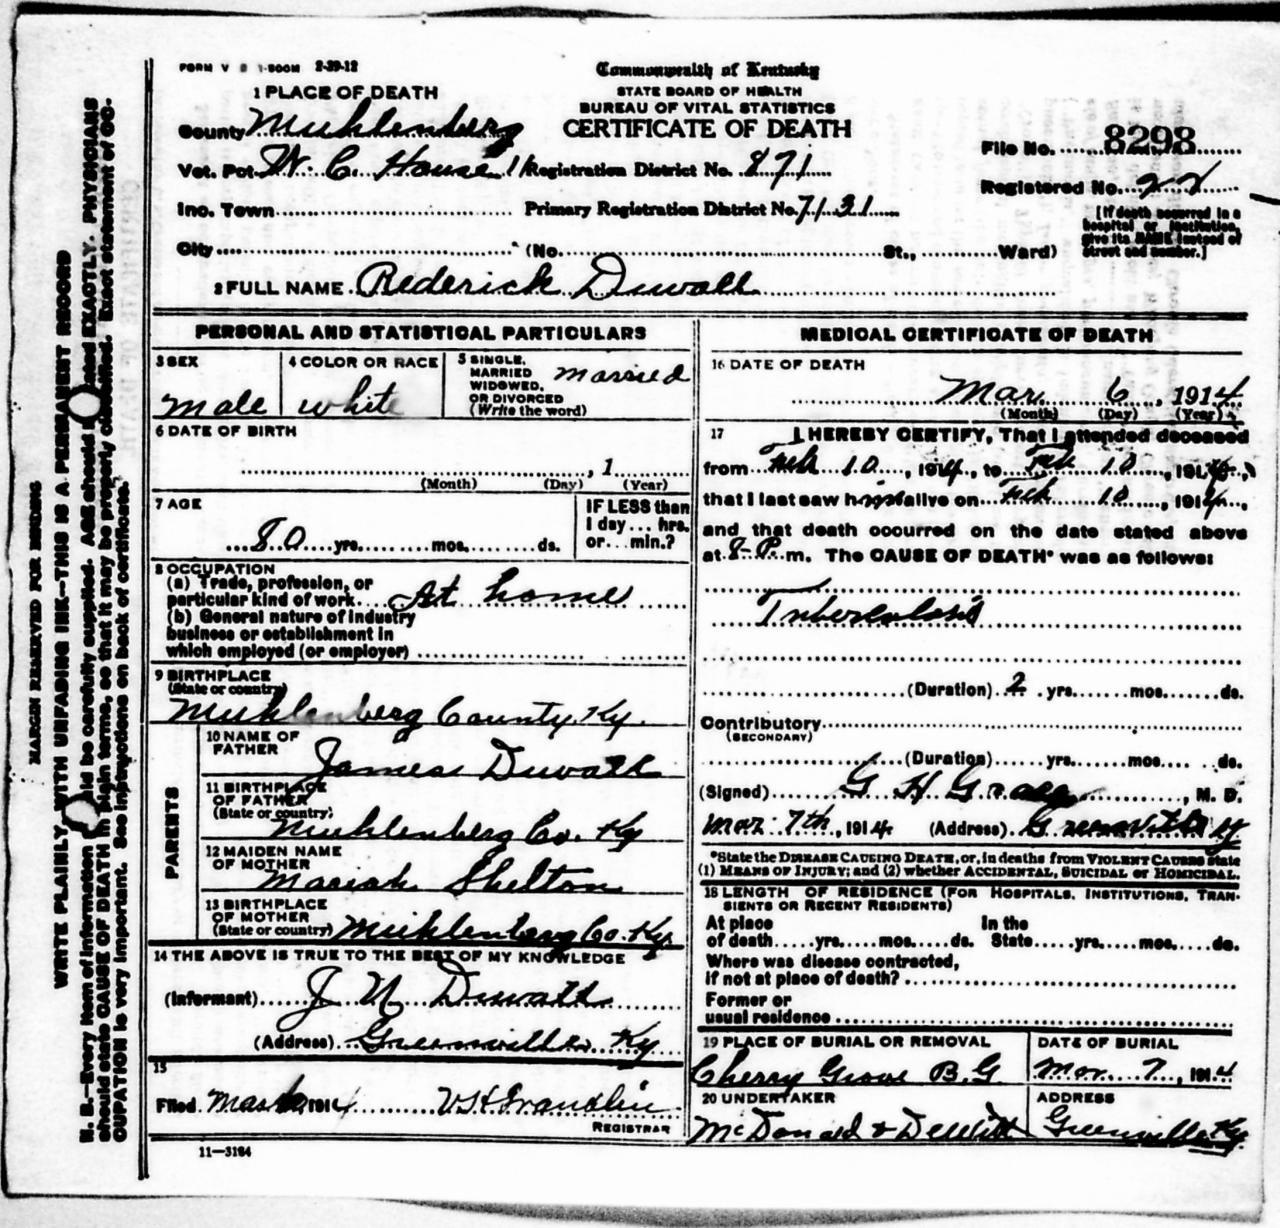 FORM V S 1-500M 2-29-12
Commonwealth of Kentucky
STATE BOARD OF HEALTH
BUREAU OF VITAL STATISTICS
CERTIFICATE OF DEATH
1 PLACE OF DEATH
County Muhlenberg
Vot. Pct. W. C. House 11 Registration District No. 871
Inc. Town Primary Registration District No. 7131
City (No. St., Ward)
File No. 8298
Registered No. 22
[If death occurred in a
hospital or institution,
give its NAME instead of
street and number.]
2 FULL NAME Rederick Duvall
PERSONAL AND STATISTICAL PARTICULARS
3 SEX
male
4 COLOR OR RACE
white
5 SINGLE,
MARRIED
WIDOWED,
OR DIVORCED
(Write the word)
married
6 DATE OF BIRTH
, 1
(Month) (Day) (Year)
7 AGE
80 yrs. mos. ds.
IF LESS than
1 day ... hrs.
or ... min.?
8 OCCUPATION
(a) Trade, profession, or
particular kind of work At home
(b) General nature of industry
business or establishment in
which employed (or employer)
9 BIRTHPLACE
(State or country)
Muhlenberg County Ky.
PARENTS
10 NAME OF
FATHER
James Duvall
11 BIRTHPLACE
OF FATHER
(State or country)
Muhlenberg Co. Ky
12 MAIDEN NAME
OF MOTHER
Mariah Shelton
13 BIRTHPLACE
OF MOTHER
(State or country) Muhlenberg Co. Ky.
14 THE ABOVE IS TRUE TO THE BEST OF MY KNOWLEDGE
(Informant) J N Duvall
(Address) Greenville Ky
15
Filed 1914
REGISTRAR
11-3184
MEDICAL CERTIFICATE OF DEATH
16 DATE OF DEATH
Mar. 6, 1914
(Month) (Day) (Year)
17 I HEREBY CERTIFY, That I attended deceased
from Feb 10, 1914, to Feb 10, 1914,
that I last saw him alive on Feb 10, 1914,
and that death occurred on the date stated above
at 8 P. m. The CAUSE OF DEATH* was as follows:
Tuberculosis
(Duration) 2 yrs. mos. ds.
Contributory
(SECONDARY)
(Duration) yrs. mos. ds.
(Signed) G H , M. D.
Mar. 7th, 1914 (Address) Greenville Ky
*State the DISEASE CAUSING DEATH, or, in deaths from VIOLENT CAUSES state
(1) MEANS OF INJURY; and (2) whether ACCIDENTAL, SUICIDAL or HOMICIDAL.
18 LENGTH OF RESIDENCE (FOR HOSPITALS, INSTITUTIONS, TRAN-
SIENTS OR RECENT RESIDENTS)
At place In the
of death yrs. mos. ds. State yrs. mos. ds.
Where was disease contracted,
if not at place of death?
Former or
usual residence
19 PLACE OF BURIAL OR REMOVAL
Cherry Grove B.G.
DATE OF BURIAL
Mar. 7, 1914
20 UNDERTAKER
McDonald & DeWitt
ADDRESS
Greenville Ky.
MARGIN RESERVED FOR BINDING
WRITE PLAINLY, WITH UNFADING INK—THIS IS A PERMANENT RECORD
N. B.—Every item of information should be carefully supplied. AGE should be stated EXACTLY. PHYSICIANS
should state CAUSE OF DEATH in plain terms, so that it may be properly classified. Exact statement of OC-
CUPATION is very important. See instructions on back of certificate.